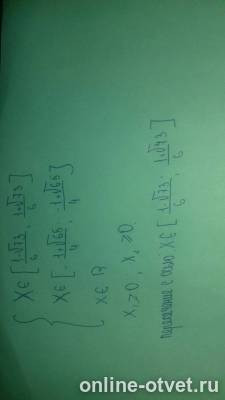 { X∈[1-√73/6 ; 1+√73/6]
X∈[-1+√65/4 ; 1+√65/4]
X∈R
x₁≥0, x₂≥0.
пересечение с осью X∈[1-√73/6 ; 1+√73/6]
online-otvet.ru